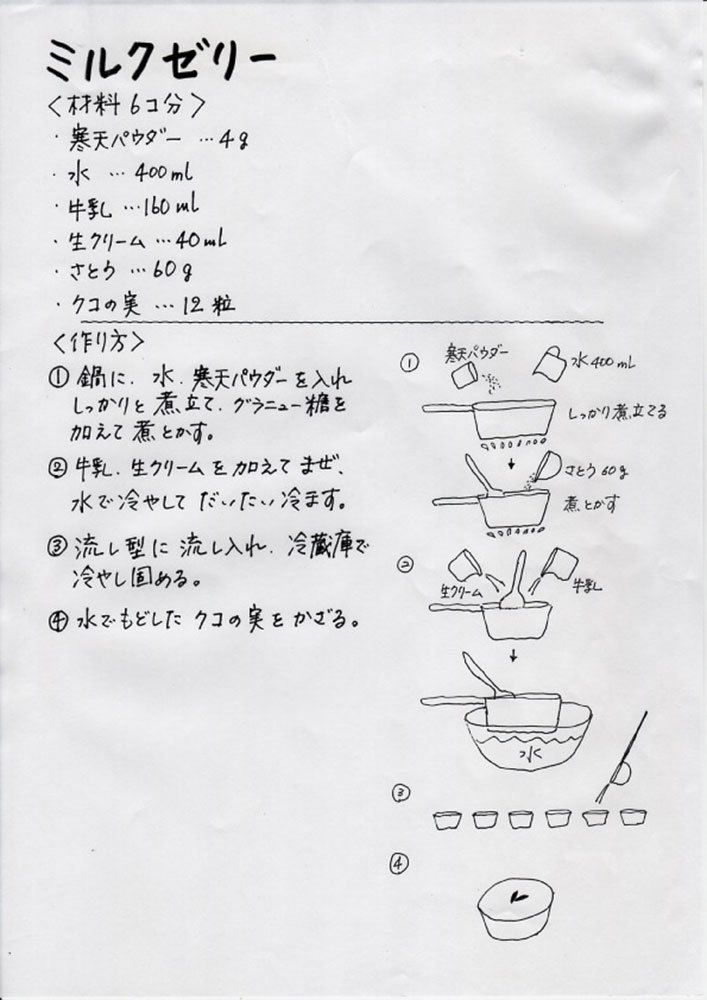 ミルクゼリー
〈材料6コ分〉
・寒天パウダー…4g
・水…400ml
・牛乳…160ml
・生クリーム…40ml
・さとう…60g
・クコの実…12粒
〈作り方〉
①鍋に、水、寒天パウダーを入れ
しっかりと煮立て、グラニュー糖を
加えて煮とかす。
②牛乳、生クリームを加えてまぜ、
水で冷やしてだいたい冷ます。
③流し型に流し入れ、冷蔵庫で
冷やし固める。
④水でもどしたクコの実をかざる。
①
寒天パウダー
水400ml
しっかり煮立てる
さとう60g
煮とかす
②
生クリーム
牛乳
水
③
④